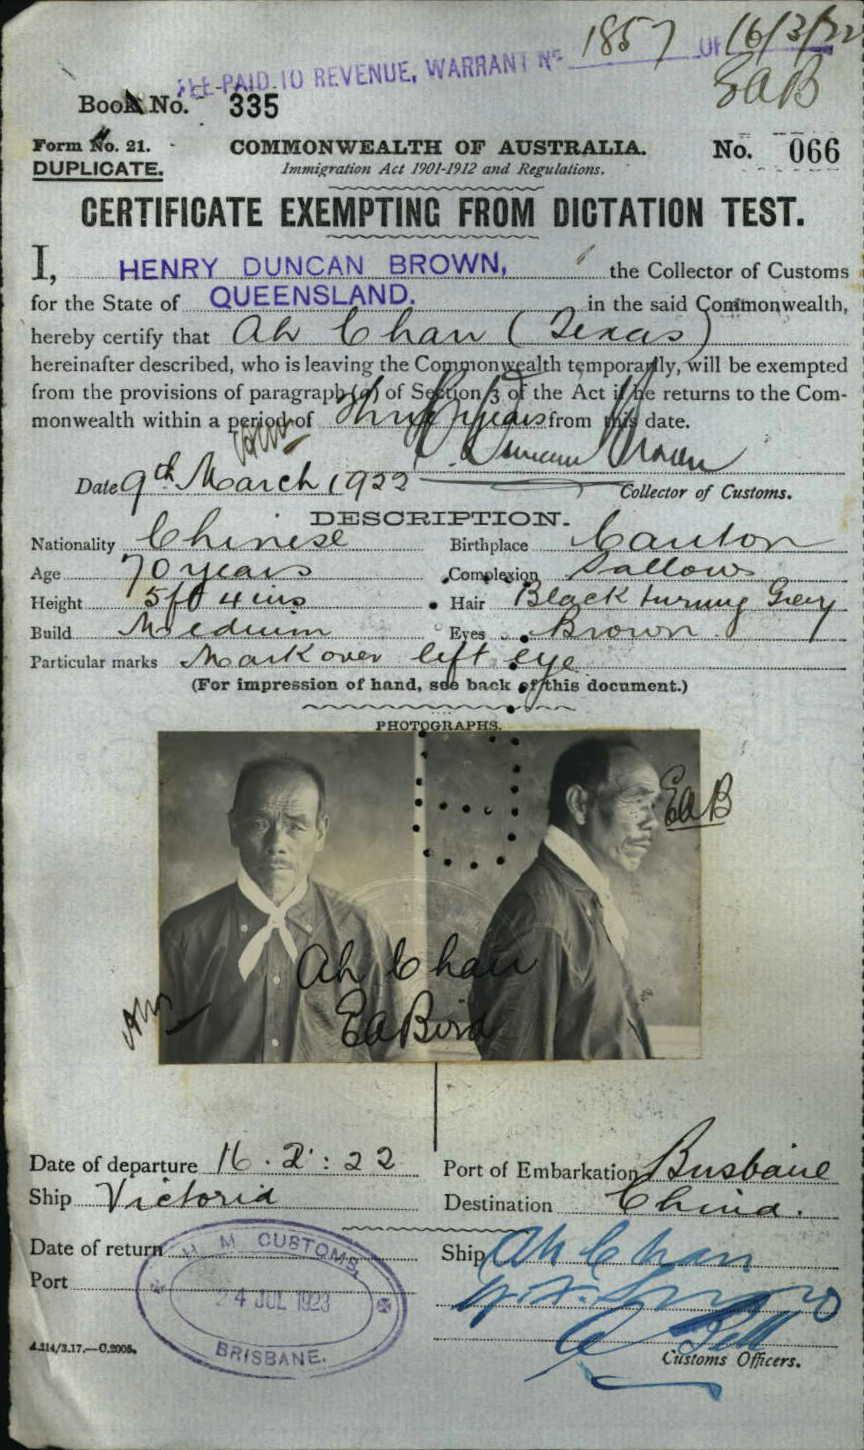 FEE PAID TO REVENUE, WARRANT No 1857 OF 16/3/22
EAB
Book No. 335
Form No. 21. COMMONWEALTH OF AUSTRALIA. No. 066
DUPLICATE. Immigration Act 1901-1912 and Regulations.
CERTIFICATE EXEMPTING FROM DICTATION TEST.
I, HENRY DUNCAN BROWN, the Collector of Customs
for the State of QUEENSLAND. in the said Commonwealth,
hereby certify that Ah Chan (Texas)
hereinafter described, who is leaving the Commonwealth temporarily, will be exempted
from the provisions of paragraph (a) of Section 3 of the Act if he returns to the Com-
monwealth within a period of Three years from this date.
H. Duncan Brown
Date 9th March 1922 Collector of Customs.
DESCRIPTION.
Nationality Chinese Birthplace Canton
Age 70 years Complexion Sallow
Height 5ft 4 ins Hair Black turning Grey
Build Medium Eyes Brown
Particular marks Mark over left eye
(For impression of hand, see back of this document.)
PHOTOGRAPHS.
EAB
Ah Chan
EABird
Date of departure 16.2:22 Port of Embarkation Brisbane
Ship Victoria Destination China.
Date of return Ship Ah Chan
Port
H. M. CUSTOMS,
24 JUL 1923
BRISBANE.
4.214/3.17.—C.2005. Customs Officers.